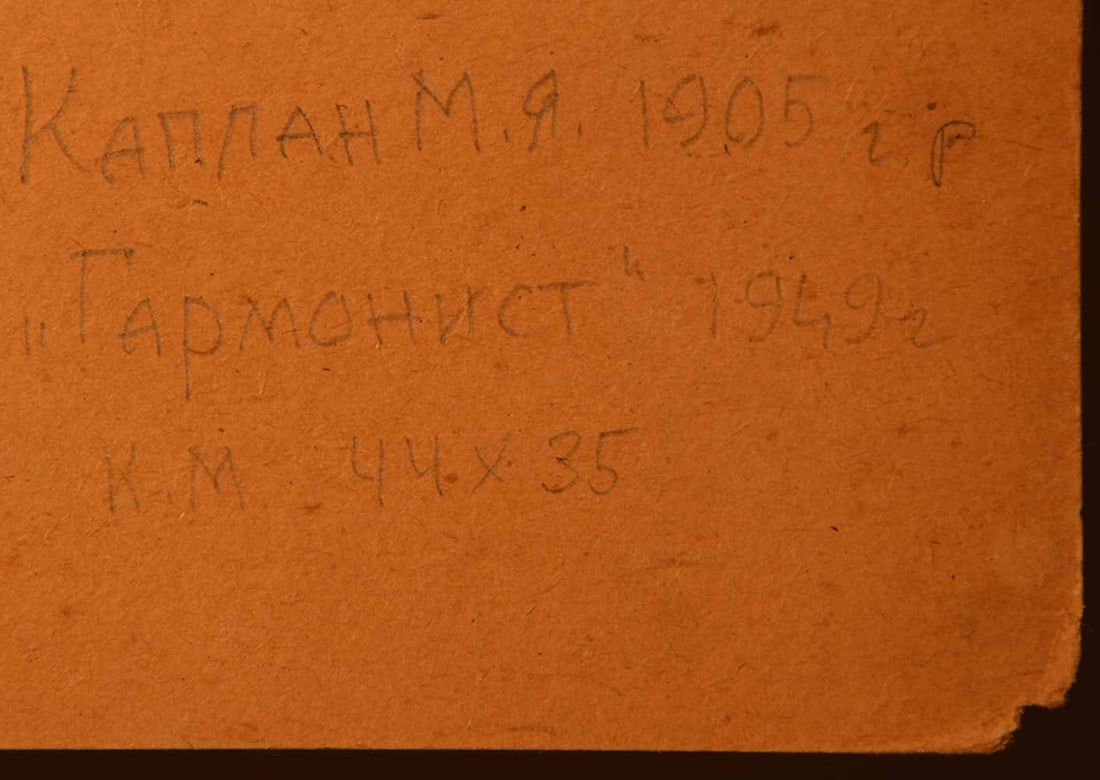 Каплан М.Я. 1905 г.р
„Гармонист“ 1949г
к.м. 44х35